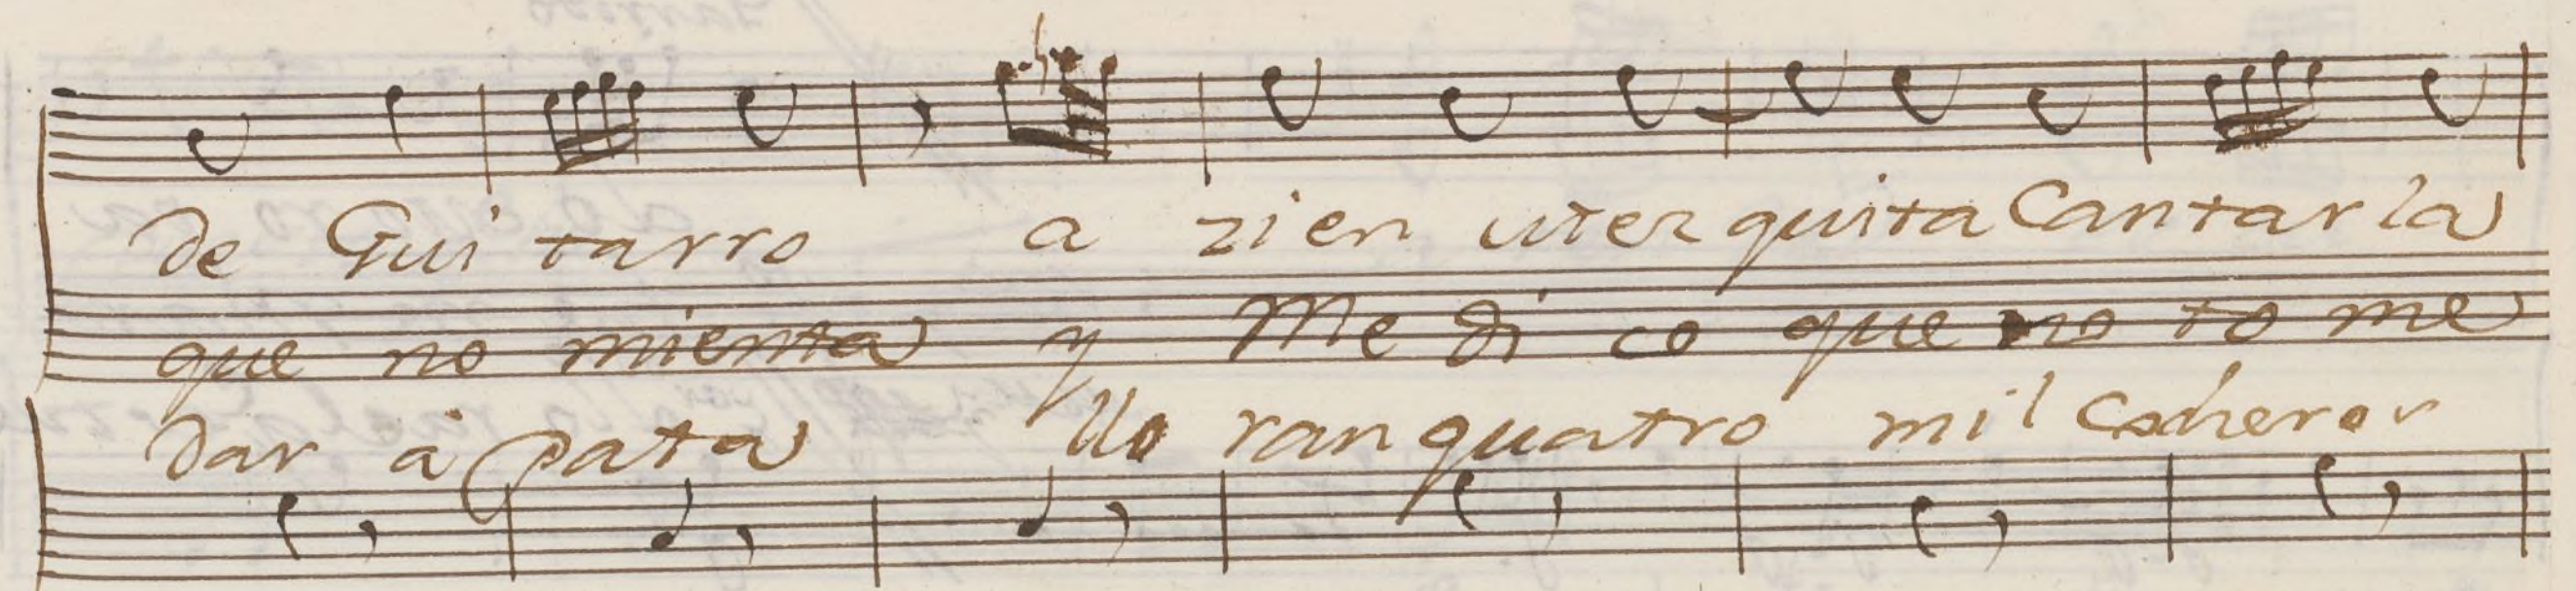 de Guitarro a zien uster quita Cantarla
que no mienta y Medico que no tome
dar a pata lloran quatro mil Cocheros